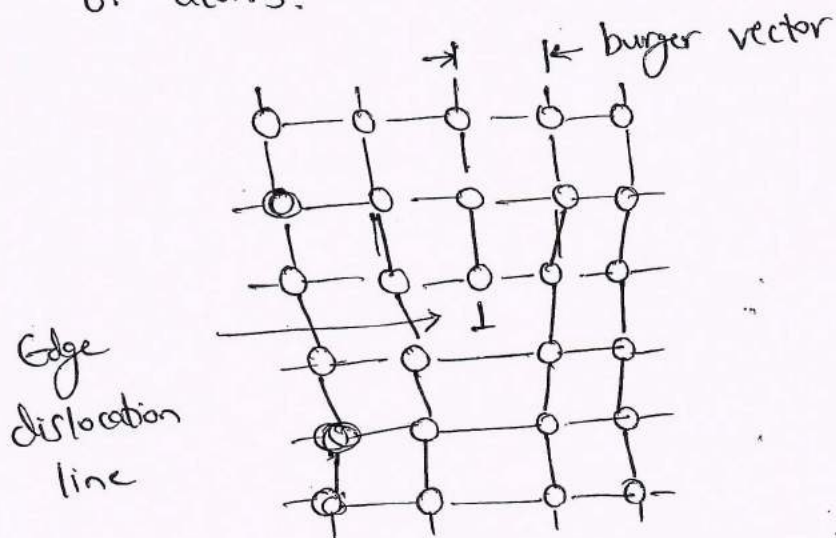 of atoms.
burger vector
Edge
dislocation
line